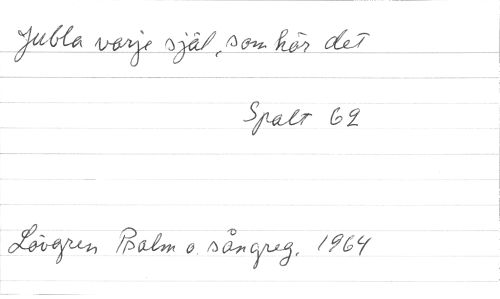 Jubla varje själ, som hör det
Spalt 62
Lövgren Psalm o. sångreg. 1964